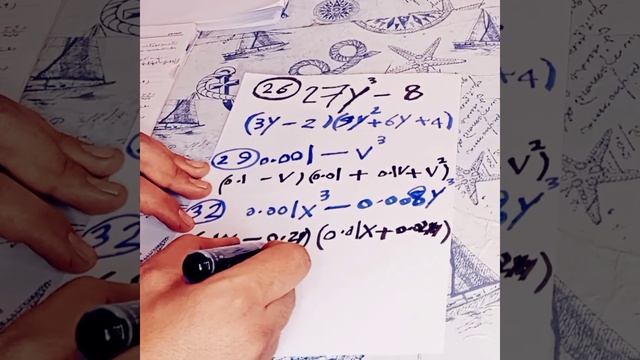 26 27y³ − 8
(3y − 2)(9y² + 6y + 4)
29 0.001 − v³
(0.1 − v)(0.01 + 0.1v + v²)
32 0.001x³ − 0.008y³
− (0.01x +